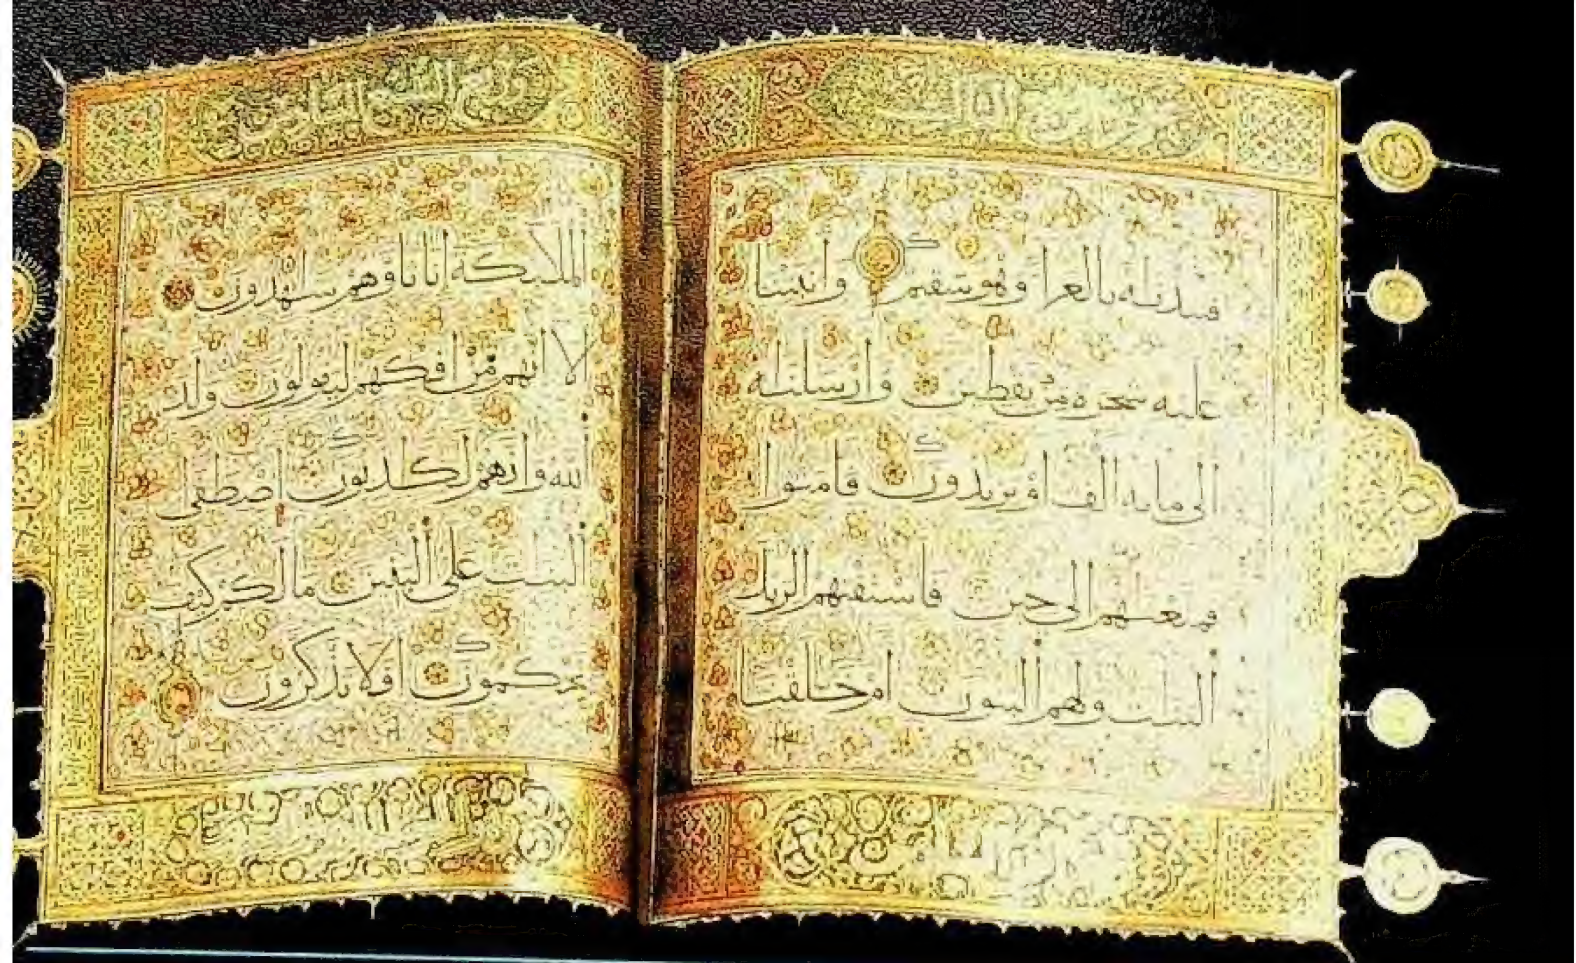 فنبذنه بالعرا وهو سقيم وانبتنا
عليه شجرة من يقطين وارسلنه
الى مائة الف او يزيدون فامنوا
فمتعنهم الى حين فاستفتهم الربك
البنت ولهم البنون ام خلقنا
السبع السادس
الملائكة اناثا وهم شهدون
الا انهم من افكهم ليقولون ولد
الله وانهم لكذبون اصطفى
البنت على البنين ما لكم كيف
تحكمون افلا تذكرون